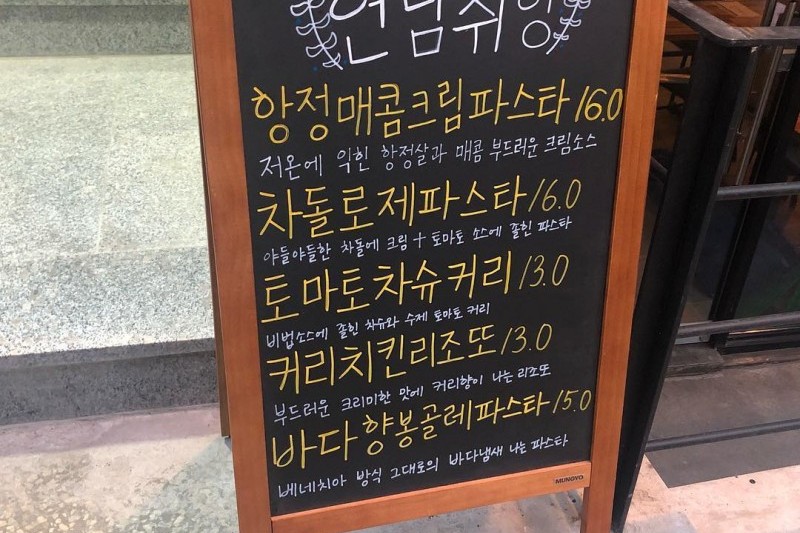 연남취향
항정매콤크림파스타 16.0
저온에 익힌 항정살과 매콤 부드러운 크림소스
차돌로제파스타 16.0
야들야들한 차돌에 크림 + 토마토 소스에 졸힌 파스타
토마토차슈커리 13.0
비법소스에 졸힌 차슈와 수제 토마토 커리
커리치킨리조또 13.0
부드러운 크리미한 맛에 커리향이 나는 리조또
바다향봉골레파스타 15.0
베네치아 방식 그대로의 바다냄새 나는 파스타
MUNGYO